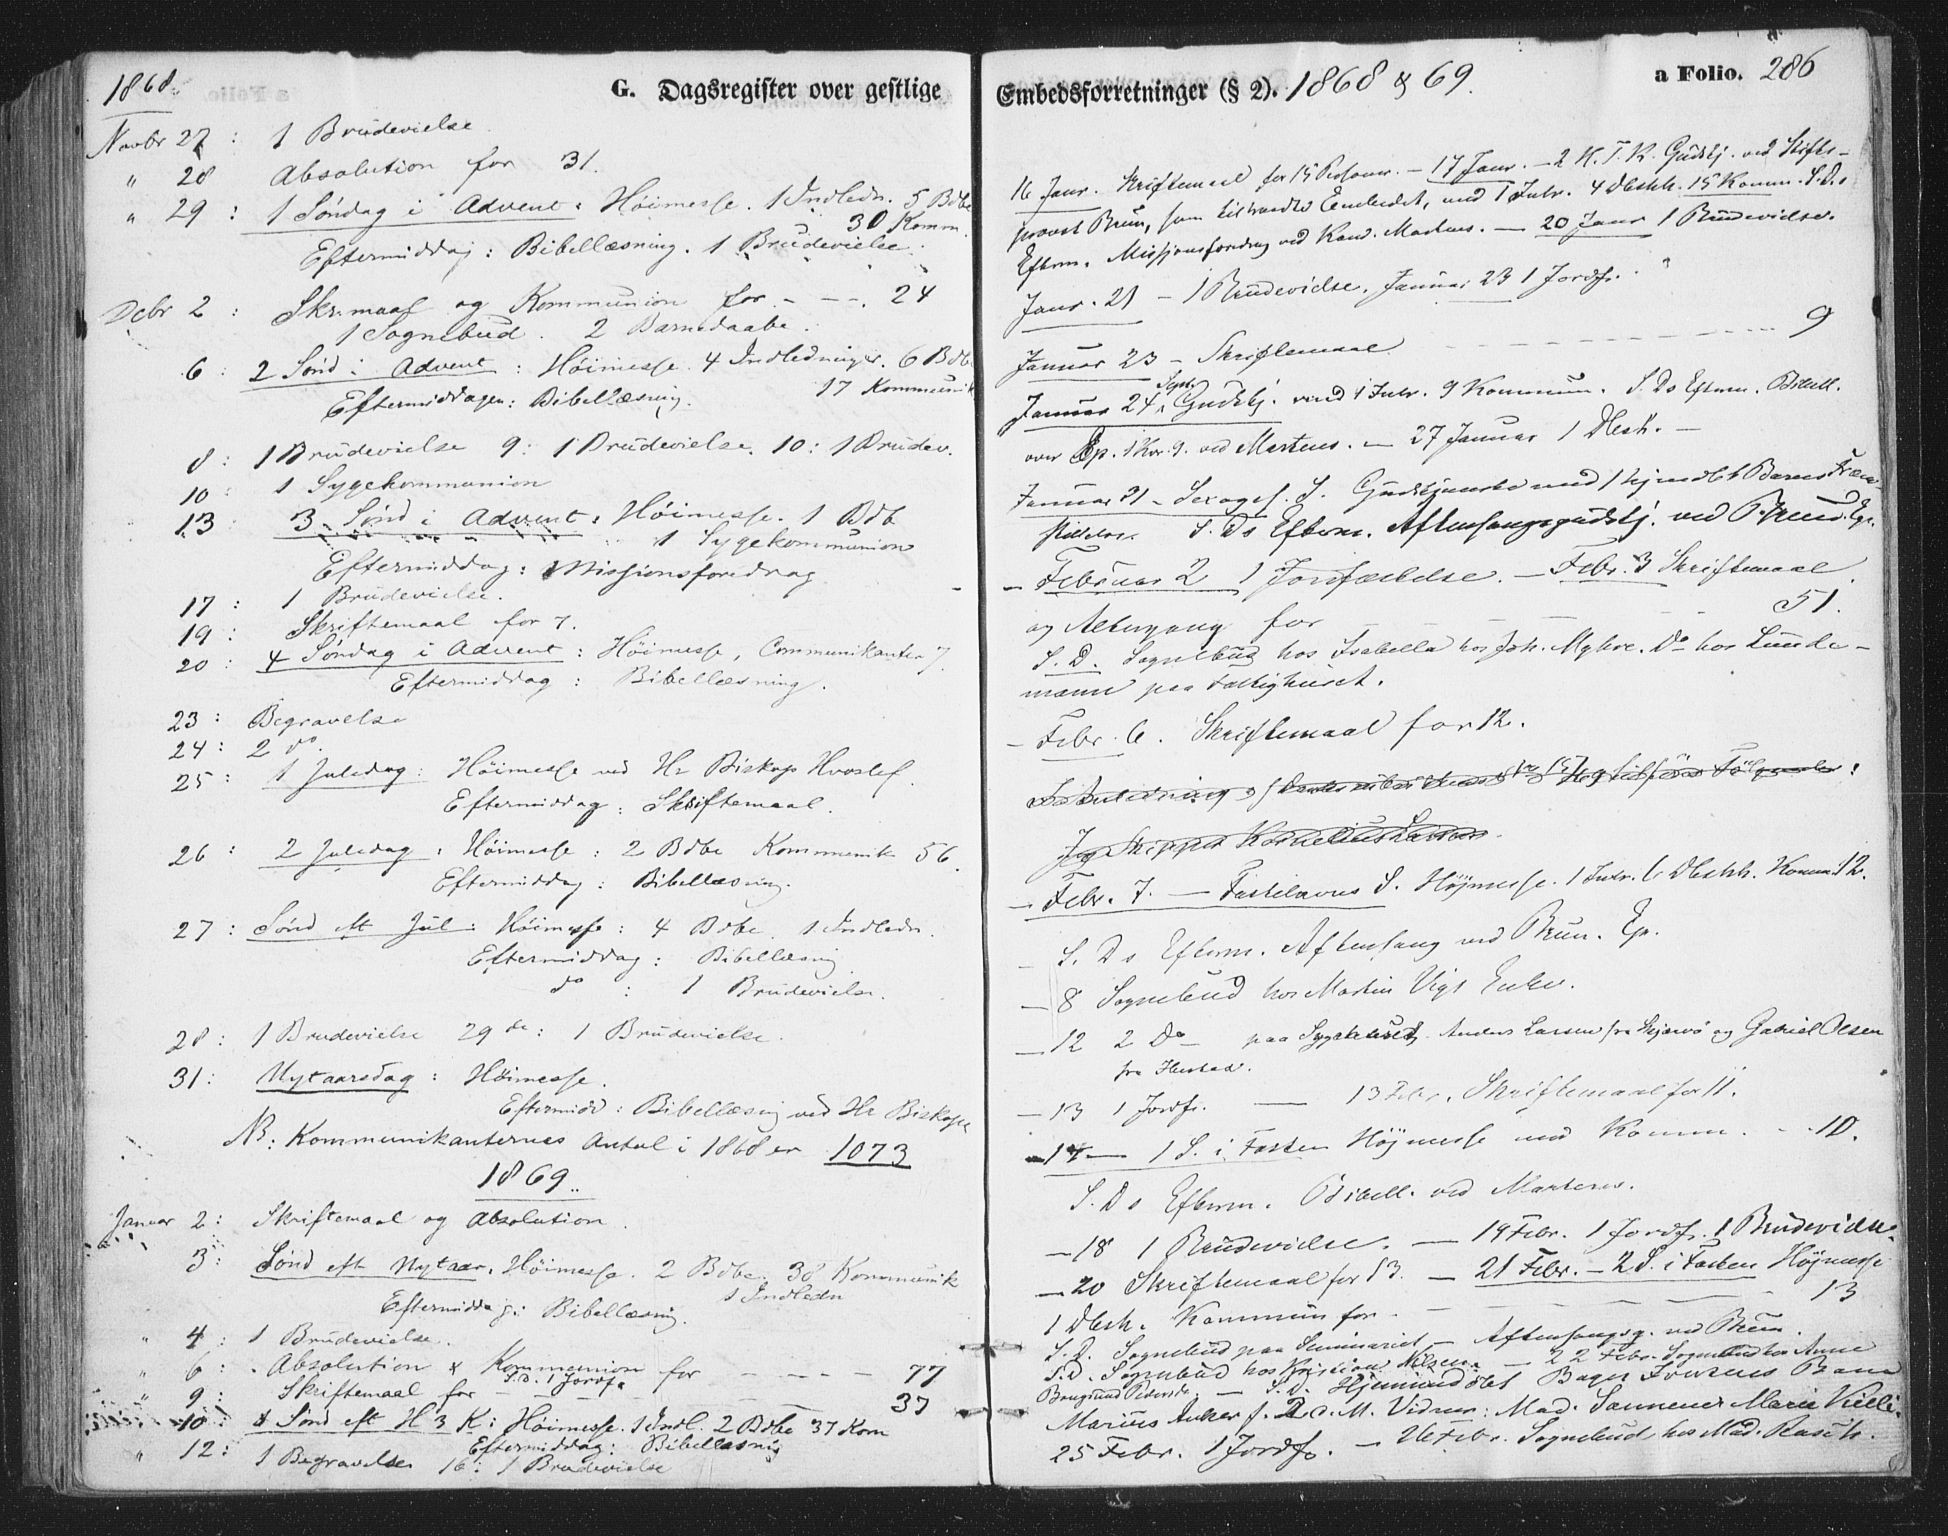 1868.
G. Dagsregister over gestlige
Novbr 27 : 1 Brudevielse
" 28 Absolution for 31.
" 29 : 1 Søndag i Advent : Høimesse. 1 Indledn. 5 Bdbe
30 Komm.
Eftermiddag : Bibellæsning. 1 Brudevielse.
Debr 2 : Skr.maal og Kommunion for - - -. 24
1 Sognebud. 2 Barnedaabe.
6 : 2 Sønd i Advent : Høimesse. 4 Indledninger. 6 Bdb
17 Kommunik
Eftermiddagen : Bibellæsning.
8 : 1 Brudevielse 9 : 1 Brudevielse. 10 : 1 Brudev.
10 : 1 Sygekommunion
13 : 3 Sønd i Advent : Høimesse. 1 Bdb
1 Sygekommunion
Eftermiddag : Missionsforedrag
17 : 1 Brudevielse.
19 : Skriftemaal for 7.
20 : 4 Søndag i Advent : Høimesse, Communikanter 7.
Eftermiddag : Bibellæsning.
23 : Begravelse
24 : 2 do.
25 : 1 Juledag : Høimesse ved Hr Biskop Hvoslef.
Eftermiddag : Skriftemaal.
26 : 2 Juledag : Høimesse : 2 Bdbe Kommunik 56.
Eftermiddag : Bibellæsning.
27 : Sønd eft Jul : Høimesse : 4 Bdbe. 1 Indledn.
Eftermiddag : Bibellæsning
do : 1 Brudevielse.
28 : 1 Brudevielse 29de : 1 Brudevielse.
31 : Nytaarsdag : Høimesse.
Eftermidd : Bibellæsning ved Hr Biskope
NB : Kommunikanternes Antal i 1868 er 1073
1869.
Januar 2 : Skriftemaal og Absolution.
3 : Sønd eft Nytaar. Høimesse. 2 Bdbe. 38 Kommunik
1 Indledn
Eftermiddag : Bibellæsning.
" 4 : 1 Brudevielse.
" 6 : Absolution & Kommunion for - - - - 77
S.d. 1 Jordf.
" 9 : Skriftemaal for - - - 37
10 : 1 Sønd eft H 3 K : Høimesse. 1 Indl. 2 Bdbe 37 Kom
Eftermiddag : Bibellæsning
" 12 : 1 Begravelse 16 : 1 Brudevielse
Embedsforretninger (§ 2). 1868 & 69.
a Folio. 286
16 Janr. Skriftemaal for 15 Personer. - 17 Janr. - 2 H. T. K. Gudstj. ved Stifts-
provst Brun, som tiltraadte Embedet, med 1 Intr. 4 Dbshh. 15 Komm. S. Ds
Efterm. Missionsforedrag ved Kand. Martens. - 20 Janr 1 Brudevielse.
Janr. 21 - 1 Brudevielse. Januar 23 1 Jordf.
Januar 23 - Skriftemaal - - - 9
Januar 24, Sept. Gudstj. med 1 Intr. 9 Kommun. S. Ds Efterm. Bibell.
over Ep. 1 Kor. 9. ved Martens. - 27 Januar 1 Dbsh. -
Januar 31 - Sexages. S. Gudstjeneste med 1 hjemdbt Barns Frem-
stillelse. S. Ds Efterm. Aftensangsgudstj. ved P. Brun. Ep.
- Februar 2 1 Jordfæstelse. - Febr. 3 Skriftemaal
og Altergang for - - - 51.
S. D. Sognebud hos Isabella hos Joh. Myhre. Do hos Lunde-
mann paa Fattighuset.
- Febr. 6. Skriftemaal for 12.
Jeg Skipper Kornelius Larsen.
- Febr. 7. - Fastelavns S. Højmesse. 1 Intr. 6 Dbshh. Komm. 12.
- S. Ds Efterm. Aftensang ved Brun. Ep.
- 8 Sognebud hos Martin Vigs Enke.
- 12 2 Do - paa Sygehuset, Anders Larsen fra Skjervø og Gabriel Olsen
fra
- 13 1 Jordf. - 13 Febr. Skriftemaal for 11.
- 14 - 1 S. i Fasten Højmesse med Komm. - - 10.
S. Ds Efterm. Bibell. ved Martens.
- 18 1 Brudevielse. - 19 Febr. 1 Jordf. 1 Brudevielse.
- 20 Skriftemaal for 13. - 21 Febr. - 2 S. i Fasten Højmesse
1 Dbsh. Kommun for - - - 13
S. D. Sognebud paa Seminariet - Aftensangsg. ved Brun.
S. D. Sognebud hos Kristian Nilsen. - 22 Febr. Sognebud hos Anne
Pedersd. - S. D. Hjemmedøbt Bager Barn
Marius f. d. M. Vidner : Mad. Marie
25 Febr. 1 Jordf. - 26 Febr. Sognebud hos Mad. Rasch.